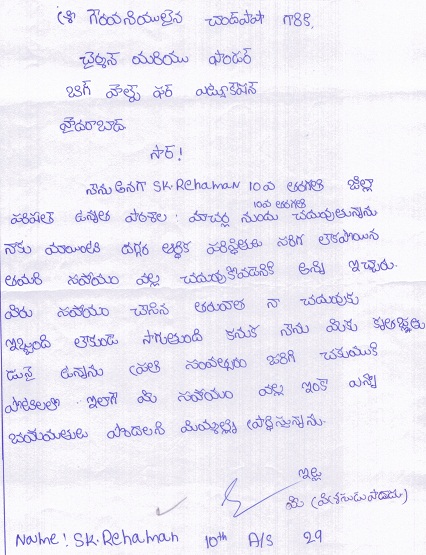 శ్రీ గౌరవనీయులైన చాంద్‌పాషా గారికి,
ఛైర్మన్ మరియు ఫౌండర్
బిగ్ హెల్ప్ ఫర్ ఎడ్యుకేషన్
హైదరాబాద్
సార్!
నేను అనగా SK.Rehaman 10వ తరగతి జిల్లా
పరిషత్ ఉన్నత పాఠశాల. మాచర్ల నుండి 10వ తరగతి చదువుతున్నాను
నాకు మాయింటి దగ్గర ఆర్థిక పరిస్థితులు సరిగా లేకపోయిన
తమరి సహాయం వల్ల చదువుకోవడానికి అన్ని ఇచ్చారు.
మీరు సహాయం చేసిన తరువాత నా చదువుకు
ఇబ్బంది లేకుండ సాగుతుంది కనుక నేను మీకు కృతజ్ఞతు
డునై ఉన్నాను ప్రతి సంవత్సరం జరిగే
పోటీలలో. ఇలాగే మీ సహాయం వల్ల ఇంకా ఎన్నో
బహుమతులు పొందాలని మిమ్మల్ని ప్రార్థిస్తున్నాను.
ఇట్లు
మీ
Name! SK.Rehaman 10th A/S 29